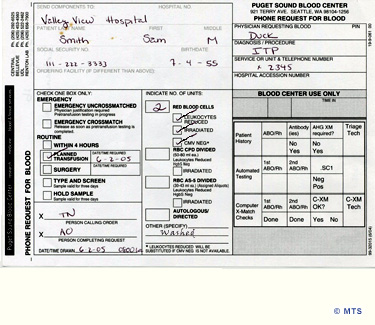 SEND COMPONENTS TO:
Valley View Hospital
PUGET SOUND BLOOD CENTER
921 TERRY AVE. SEATTLE, WA 98104-1256
PHONE REQUEST FOR BLOOD
PATIENT NAME FIRST MIDDLE
Smith Sam M
PHYSICIAN REQUESTING BLOOD
Duck
SOCIAL SECURITY NO.
111-222-3333 7-4-55
DIAGNOSIS / PROCEDURE
ITP
ORDERING FACILITY (IF DIFFERENT THAN ABOVE)
SERVICE OR UNIT & TELEPHONE NUMBER
x 2345
HOSPITAL ACCESSION NUMBER
CHECK ONE BOX ONLY:
EMERGENCY
EMERGENCY UNCROSSMATCHED
Physician justification required
Pretransfusion testing in progress
EMERGENCY CROSSMATCH
Release as soon as pretransfusion testing is completed.
ROUTINE
WITHIN 4 HOURS
PLANNED TRANSFUSION
DATE/TIME REQUIRED
6-2-05
SURGERY
DATE/TIME REQUIRED
TYPE AND SCREEN
Sample valid for three days
HOLD SAMPLE
Sample valid for three days
X TN
PERSON CALLING ORDER
X AO
PERSON COMPLETING REQUEST
DATE/TIME DRAWN 6-2-05 0600
INDICATE NO. OF UNITS:
2 RED BLOOD CELLS
LEUKOCYTES REDUCED
IRRADIATED
CMV NEG*
RBC CPD DIVIDED
(50-60 ml ea.)
Leukocytes Reduced
IRRADIATED
RBC AS-5 DIVIDED
Leukocytes Reduced
IRRADIATED
AUTOLOGOUS/
DIRECTED
OTHER (SPECIFY)
Washed
* LEUKOCYTES REDUCED WILL BE
SUBSTITUTED IF CMV NEG IS NOT AVAILABLE.
BLOOD CENTER USE ONLY
TIME IN
Patient History
ABO/Rh
Antibody (ies)
No
Yes
AHG XM required?
No
Yes
Triage Tech
Automated Testing
1st ABO/Rh
2nd ABO/Rh
SC1
Neg
Pos
Computer X-Match Checks
1st ABO/Rh
Done
2nd ABO/Rh
Done
C-XM OK?
Yes No
C-XM Tech
Puget Sound Blood Center
PHONE REQUEST FOR BLOOD
© MTS